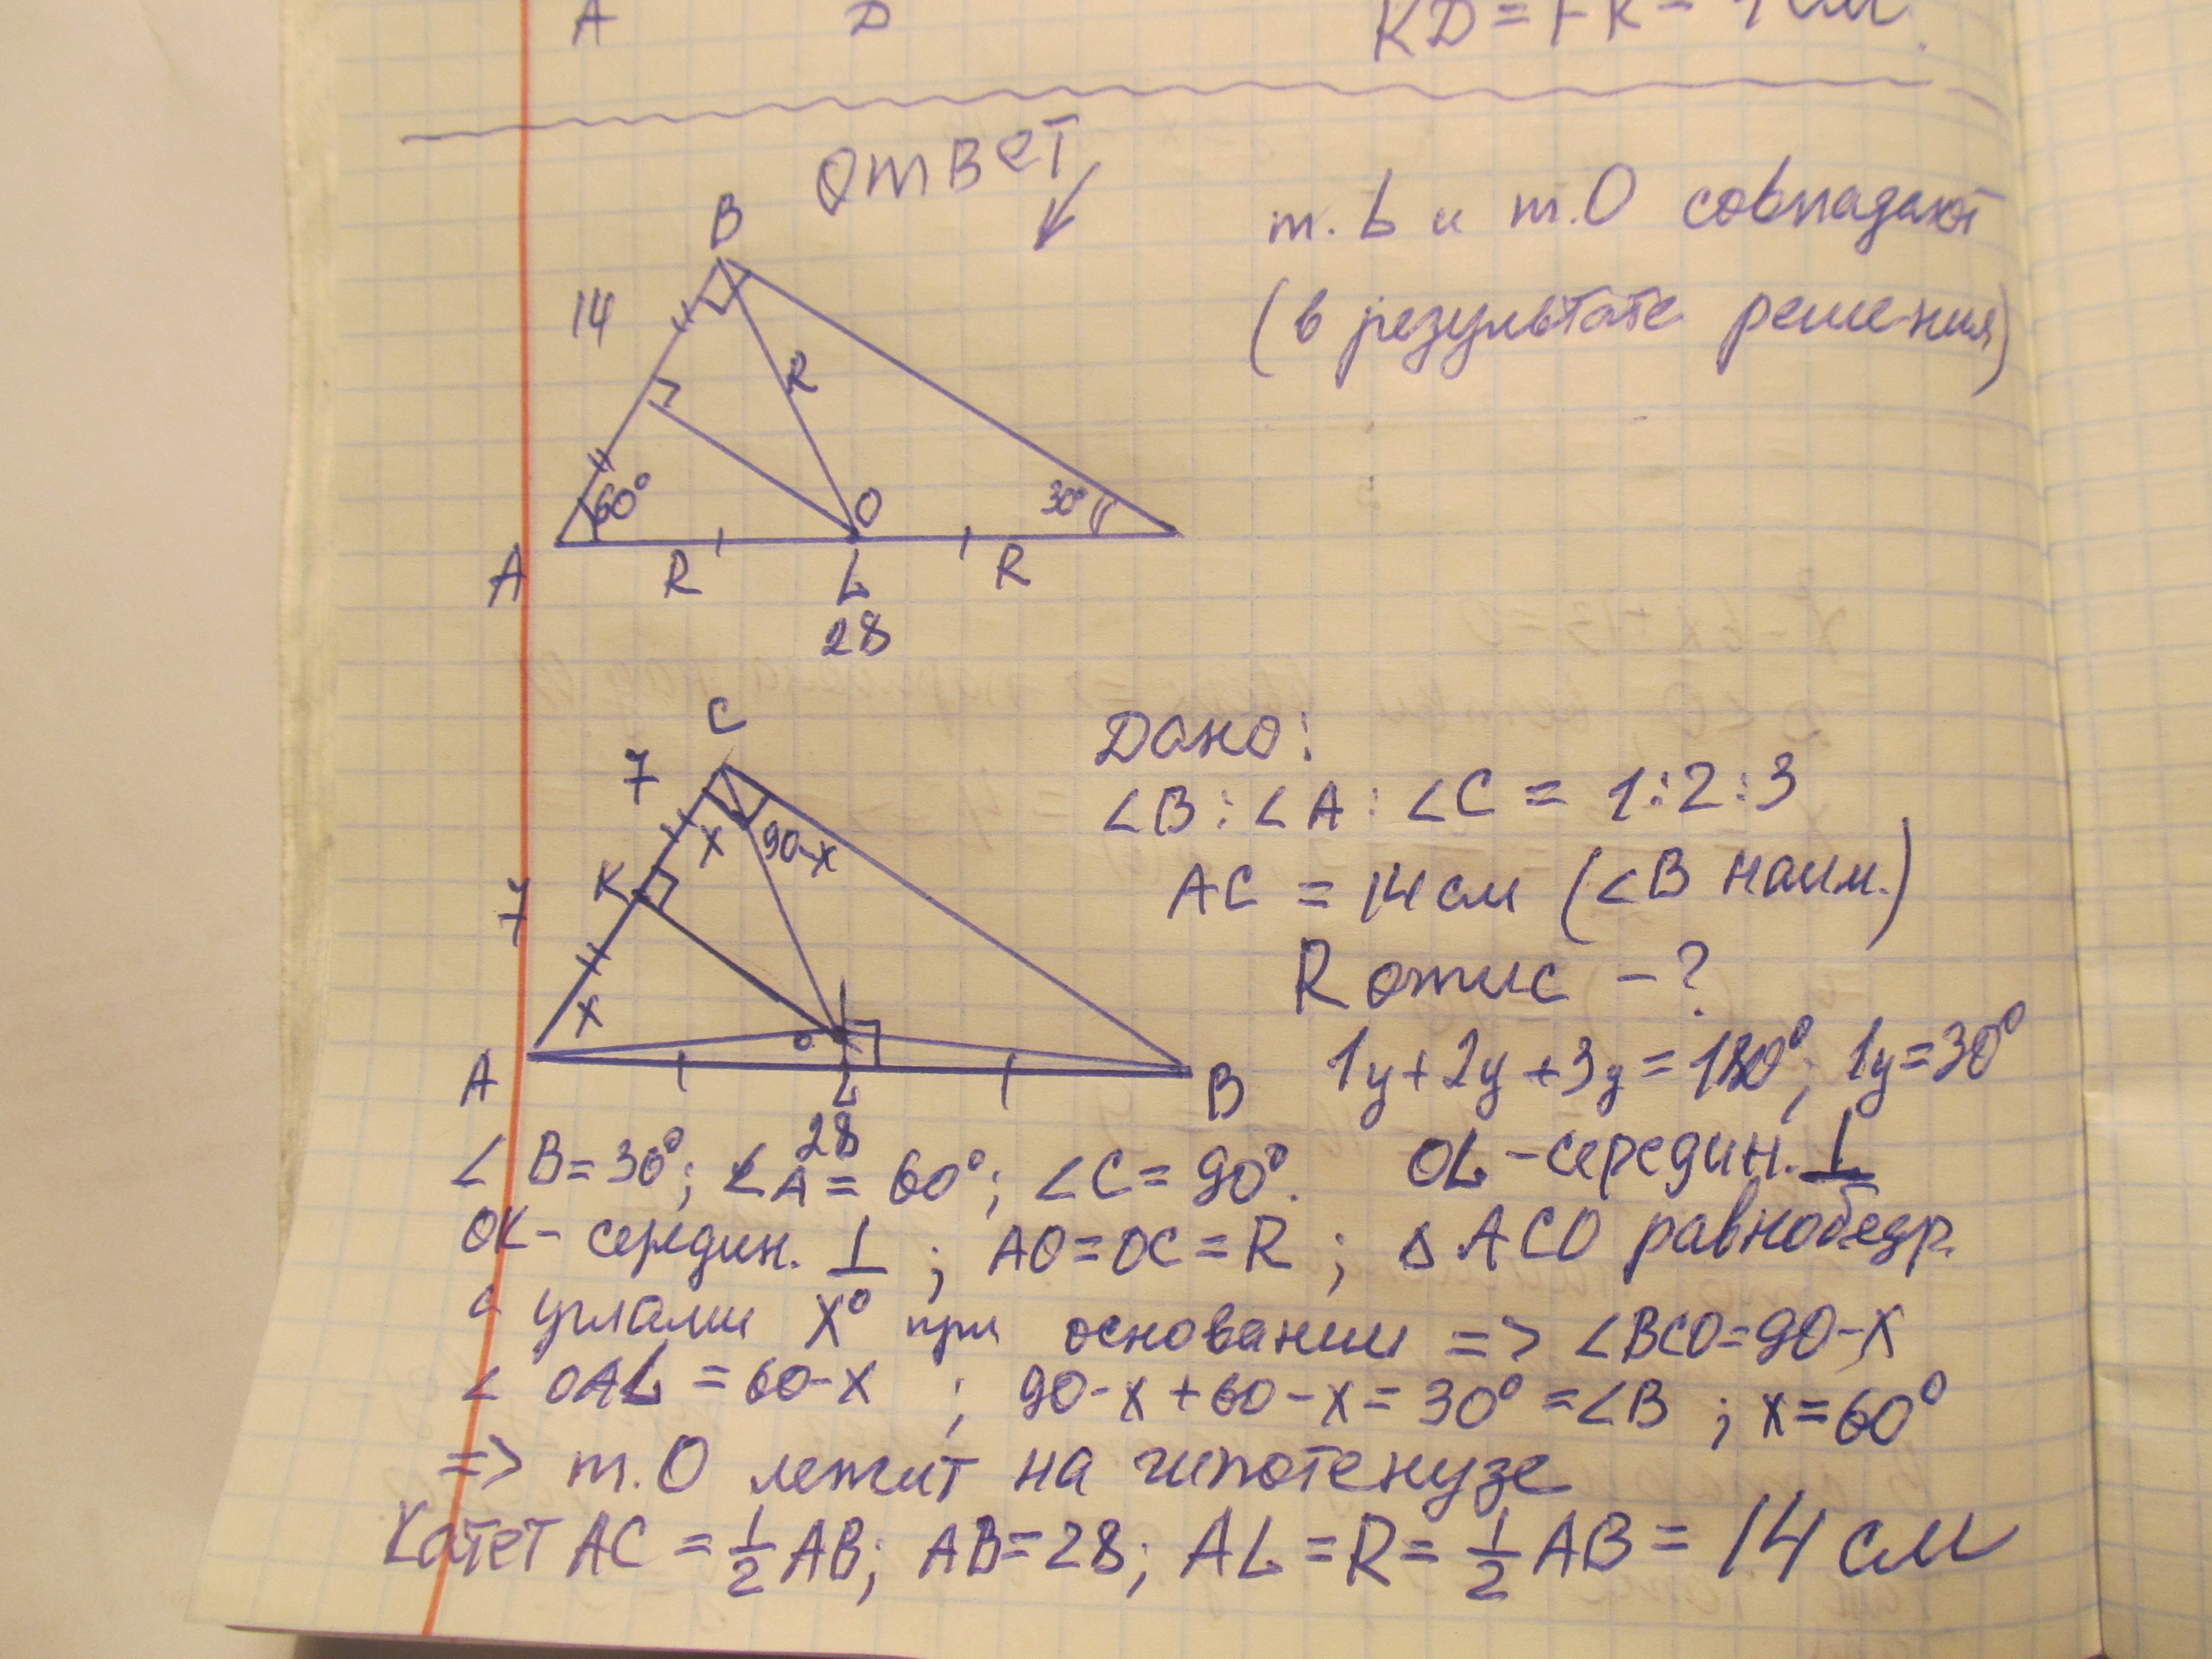 A D
KD = FK = 4 см.
ответ
т. L и т. O совпадают
(в результате решения)
B
14
R
60°
O
30°
A
R
L
R
28
C
7
x
90-x
K
7
x
o
A
L
B
28
Дано:
∠B : ∠A : ∠C = 1:2:3
AC = 14 см (∠B наим.)
R опис - ?
1y + 2y + 3y = 180°; 1y = 30°
∠B = 30°; ∠A = 60°; ∠C = 90°. OL - середин. ⊥
OK - середин. ⊥ ; AO = OC = R ; Δ ACO равнобедр.
с углами x° при основании => ∠BCO = 90-x
∠ OAL = 60-x ; 90-x+60-x = 30° = ∠B ; x = 60°
=> т. O лежит на гипотенузе
Катет AC = 1/2 AB; AB = 28; AL = R = 1/2 AB = 14 см